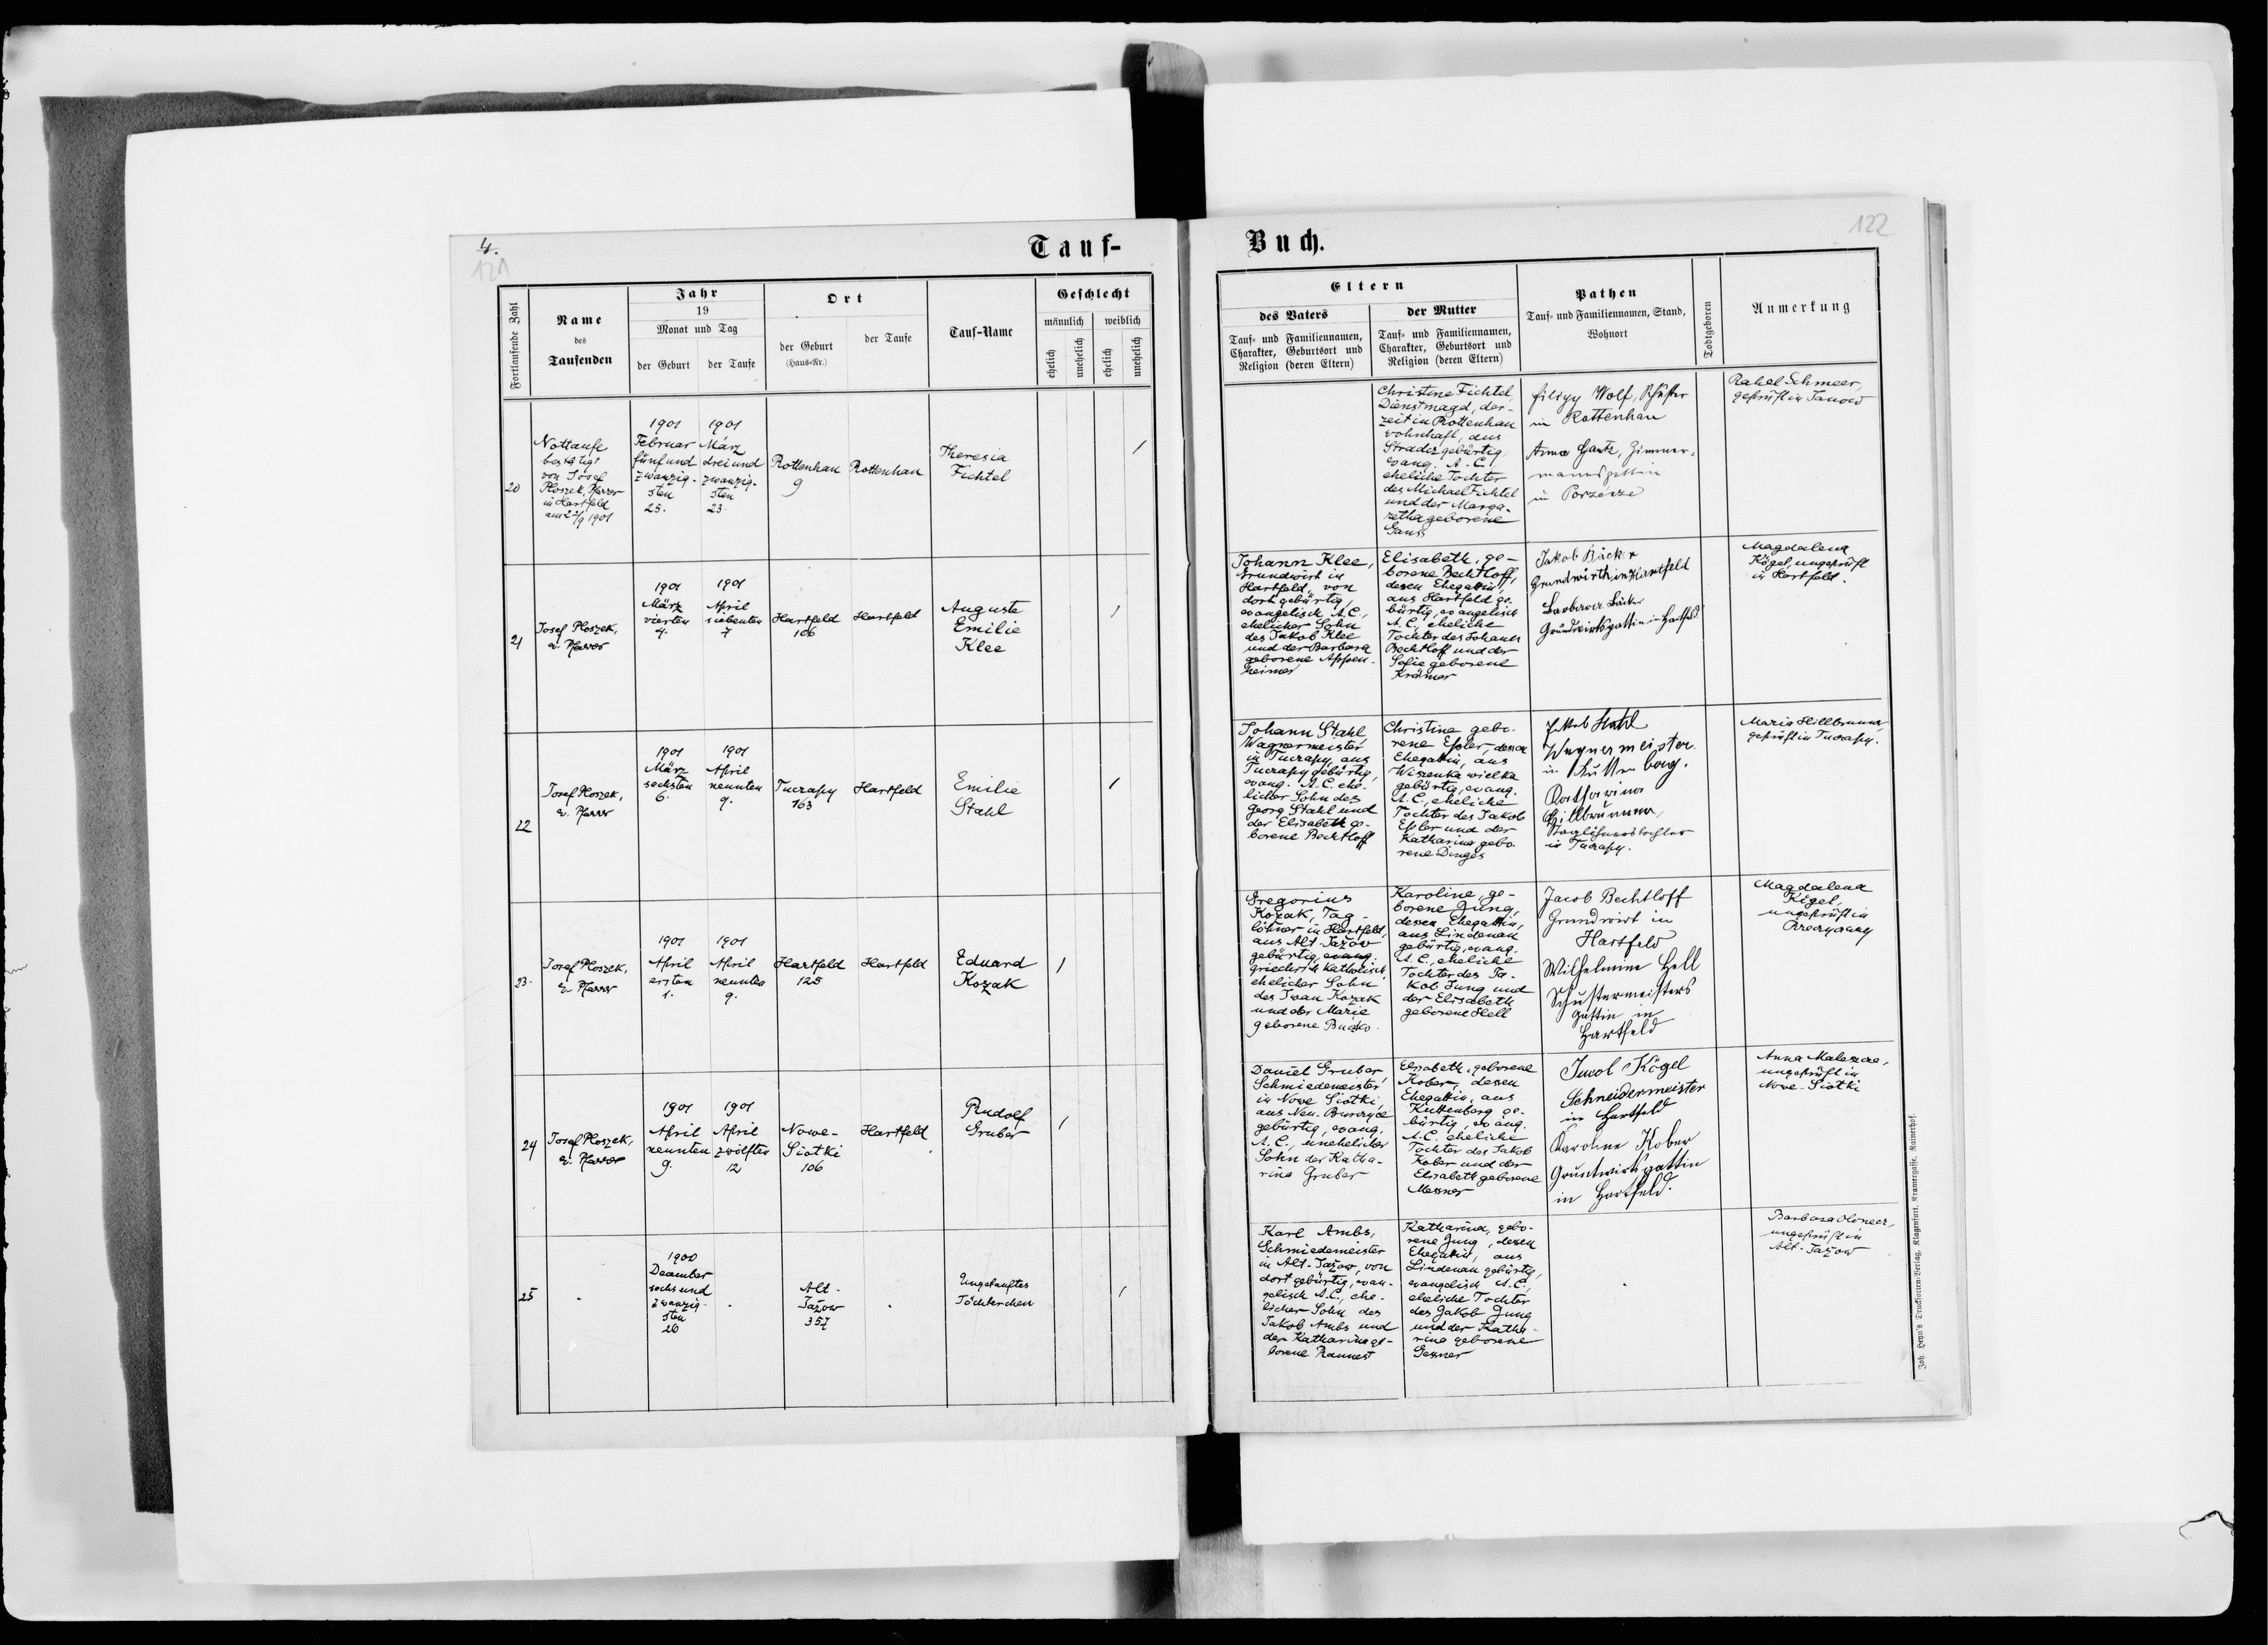 4.
121
Tauf-
Fortlaufende Zahl
Name
des
Taufenden
Jahr
19
Monat und Tag
der Geburt
der Taufe
Ort
der Geburt
(Haus-Nr.)
der Taufe
Tauf-Name
Geschlecht
männlich
weiblich
ehelich
unehelich
ehelich
unehelich
20
Nottaufe
bestätigt
von Josef
Ploszek, Pfarrer
in Hartfeld
1901
Februar
fünfund
zwanzig-
sten
25.
1901
März
dreiund
zwanzig-
sten
23.
Rottenhan
9
Rottenhan
Theresia
Fichtel
1
21
Josef Ploszek,
ev. Pfarrer
1901
März
vierten
4.
1901
April
siebenten
7
Hartfeld
106
Hartfeld
Auguste
Emilie
Klee
1
22
Josef Ploszek,
ev. Pfarrer
1901
März
sechsten
6.
1901
April
neunten
9.
Tuczapy
163
Hartfeld
Emilie
Stahl
1
23.
Josef Ploszek,
ev. Pfarrer
1901
April
ersten
1.
1901
April
neunten
9.
Hartfeld
125
Hartfeld
Eduard
Kozak
1
24
Josef Ploszek,
ev. Pfarrer
1901
April
neunten
9.
1901
April
zwölften
12
Nowe-
Siotki
106
Hartfeld
Rudolf
Gruber
1
25
1900
December
sechsund
zwanzig-
sten
26
Alt-
Jazow
357
Ungetauftes
Töchterchen
1
122
Buch.
Eltern
des Vaters
Tauf- und Familiennamen,
Charakter, Geburtsort und
Religion (deren Eltern)
der Mutter
Tauf- und Familiennamen,
Charakter, Geburtsort und
Religion (deren Eltern)
Pathen
Tauf- und Familiennamen, Stand,
Wohnort
Todtgeboren
Anmerkung
Christine Fichtel,
Dienstmagd, der-
zeit in Rottenhan
wohnhaft, aus
Stradcz gebürtig
evang. A.C.,
eheliche Tochter
des Michael Fichtel
und der Marga-
retha geborene
Gauss
Wolf,
in Rottenhan
Anna Zimmer-
mannsgattin
in Porzecze
Rahel Schmeer,
geprüft in Janow
Johann Klee,
Grundwirt in
Hartfeld, von
dort gebürtig,
evangelisch A.C.,
ehelicher Sohn
des Jakob Klee
und der Barbara
geborene Appen-
heimer
Elisabeth, ge-
borene Bechtloff,
dessen Ehegattin,
aus Hartfeld ge-
bürtig, evangelisch
A.C., eheliche
Tochter des Johann
Bechtloff und der
Sofie geborene
Krämer
Jakob Bäcker
Grundwirth in Hartfeld
Barbara Bäcker
Grundwirtsgattin in Hartfeld
Magdalena
Kögel, ungeprüft
in Hartfeld.
Johann Stahl,
Wagnermeister
in Tuczapy, aus
Tuczapy gebürtig,
evang. A.C. ehe-
licher Sohn des
Georg Stahl und
der Elisabeth ge-
borene Bechtloff
Christine gebo-
rene Eßler, dessen
Ehegattin, aus
Wiszenka wielka
gebürtig, evang.
A.C., eheliche
Tochter des Jakob
Eßler und der
Katharina gebo-
rene Dinges
Jakob Stahl
Wagnermeister
in
Katharina
Hillbrunner,
Taglöhnerstochter
in Tuczapy.
Maria Hillbrunner,
geprüft in Tuczapy.
Gregorius
Kozak, Tag-
löhner in Hartfeld,
aus Alt-Jazow
gebürtig, evang.
griechisch katholisch,
ehelicher Sohn
des Iwan Kozak
und der Marie
geborene Buczko.
Karoline, ge-
borene Jung,
dessen Ehegattin,
aus Lindenau
gebürtig, evang.
A.C., eheliche
Tochter des Ja-
kob Jung und
der Elisabeth
geborene Hell
Jacob Bechtloff
Grundwirt in
Hartfeld
Wilhelmine Hell
Schustermeisters
Gattin in
Hartfeld
Magdalena
Kögel,
ungeprüft in
Daniel Gruber,
Schmiedemeister
in Nowe Siotki
aus Neu-
gebürtig, evang.
A.C., unehelicher
Sohn der Katha-
rina Gruber
Elisabeth, geborene
Kober, dessen
Ehegattin, aus
Kuttenberg ge-
bürtig, evang.
A.C. eheliche
Tochter des Jakob
Kober und der
Elisabeth geborene
Messner
Kögel
Schneidermeister
in Hartfeld
Karoline Kober
Grundwirtsgattin
in Hartfeld.
Anna
ungeprüft in
Nowe-Siotki
Karl Ambs,
Schmiedemeister
in Alt-Jazow, von
dort gebürtig, evan-
gelisch A.C., ehe-
licher Sohn des
Jakob Ambs und
der Katharina ge-
borene
Katharina, gebo-
rene Jung, dessen
Ehegattin, aus
Lindenau gebürtig,
evangelisch A.C.,
eheliche Tochter
des Jakob Jung
und der Katha-
rina geborene
Gessner
Barbara
ungeprüft in
Alt-Jazow
Joh. Heyn's Drucksorten-Verlag, Klagenfurt, Kramergasse, Rainerhof.